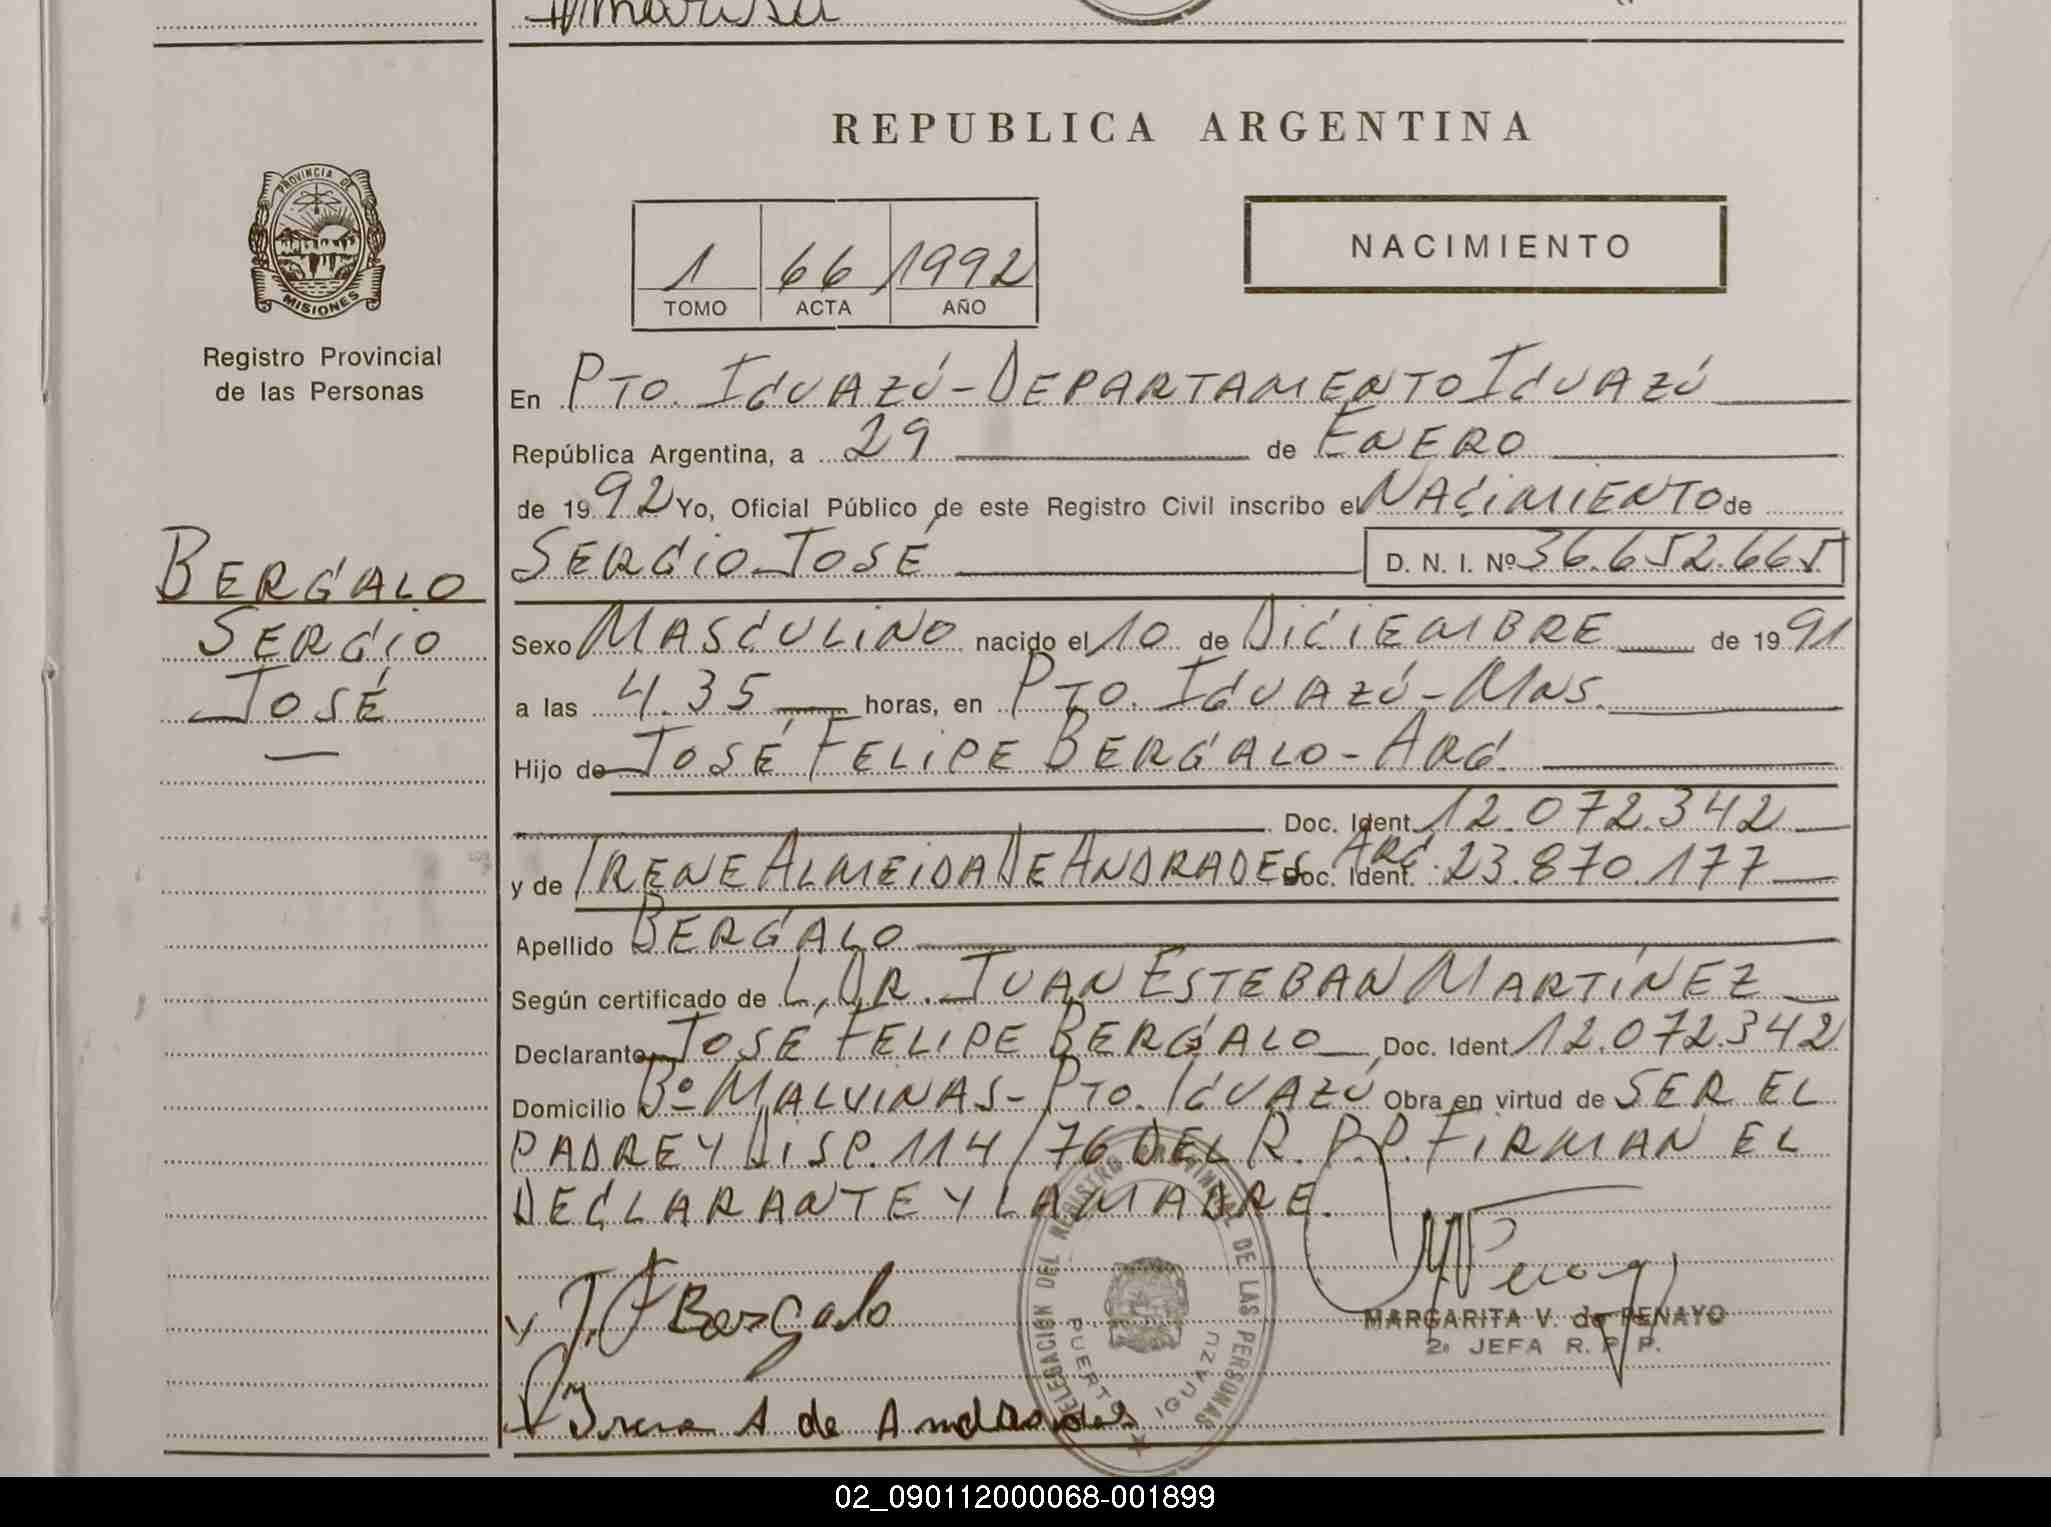 REPUBLICA ARGENTINA
PROVINCIA DE
MISIONES
Registro Provincial
de las Personas
1 66 1992
TOMO ACTA AÑO
NACIMIENTO
BERGALO
SERGIO
JOSÉ
En PTO. IGUAZÚ - DEPARTAMENTO IGUAZÚ
República Argentina, a 29 de ENERO
de 1992 Yo, Oficial Público de este Registro Civil inscribo el NACIMIENTO de
SERGIO JOSÉ D. N. I. Nº 36.652.665
Sexo MASCULINO nacido el 10 de DICIEMBRE de 1991
a las 4.35 horas, en PTO. IGUAZÚ - MNS.
Hijo de JOSÉ FELIPE BERGALO - ARG.
Doc. Ident. 12.072.342
y de IRENE ALMEIDA DE ANDRADES ARG. Doc. Ident. 23.870.177
Apellido BERGALO
Según certificado de L, DR. JUAN ESTEBAN MARTÍNEZ
Declarante JOSÉ FELIPE BERGALO Doc. Ident 12.072.342
Domicilio Bº MALVINAS - PTO. IGUAZÚ Obra en virtud de SER EL
PADRE Y DISP. 114/76 DEL R.P.P. FIRMAN EL
DECLARANTE Y LA MADRE.
J. F Bergalo
Irene A de Andrades
DELEGACION DEL REGISTRO PROVINCIAL DE LAS PERSONAS
PUERTO IGUAZU
MARGARITA V. de PENAYO
2ª JEFA R. P. P.
02_090112000068-001899